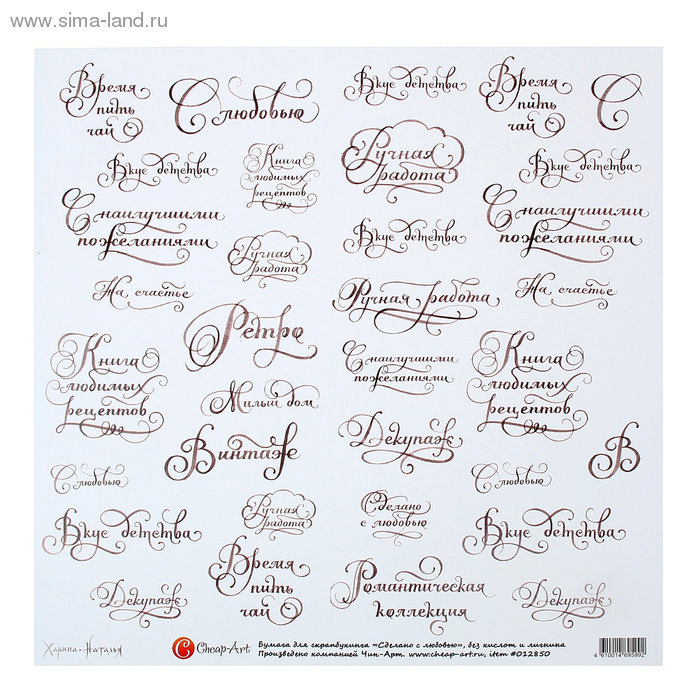 www.sima-land.ru
Время
пить
чай
С любовью
Вкус детства
Время
пить
чай
С
Вкус детства
Книга
любимых
рецептов
Ручная
работа
Вкус детства
С наилучшими
пожеланиями
Ручная
работа
Вкус детства
С наилучшими
пожеланиями
На счастье
Ручная работа
На счастье
Ретро
Книга
любимых
рецептов
С наилучшими
пожеланиями
Книга
любимых
рецептов
Милый дом
Винтаж
Декупаж
В
С любовью
С любовью
Ручная
работа
Сделано
с любовью
Вкус детства
Вкус детства
Время
пить
чай
Романтическая
коллекция
Декупаж
Декупаж
Харина Наталья
C Cheap-Art
Бумага для скрапбукинга «Сделано с любовью», без кислот и лигнина
Произведено компанией Чип-Арт. www.cheap-art.ru, item #012850
4 610014 695992